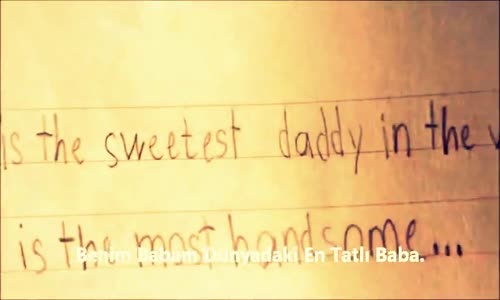 is the sweetest daddy in the
is the most handsome...
Benim Babam Dünyadaki En Tatlı Baba.